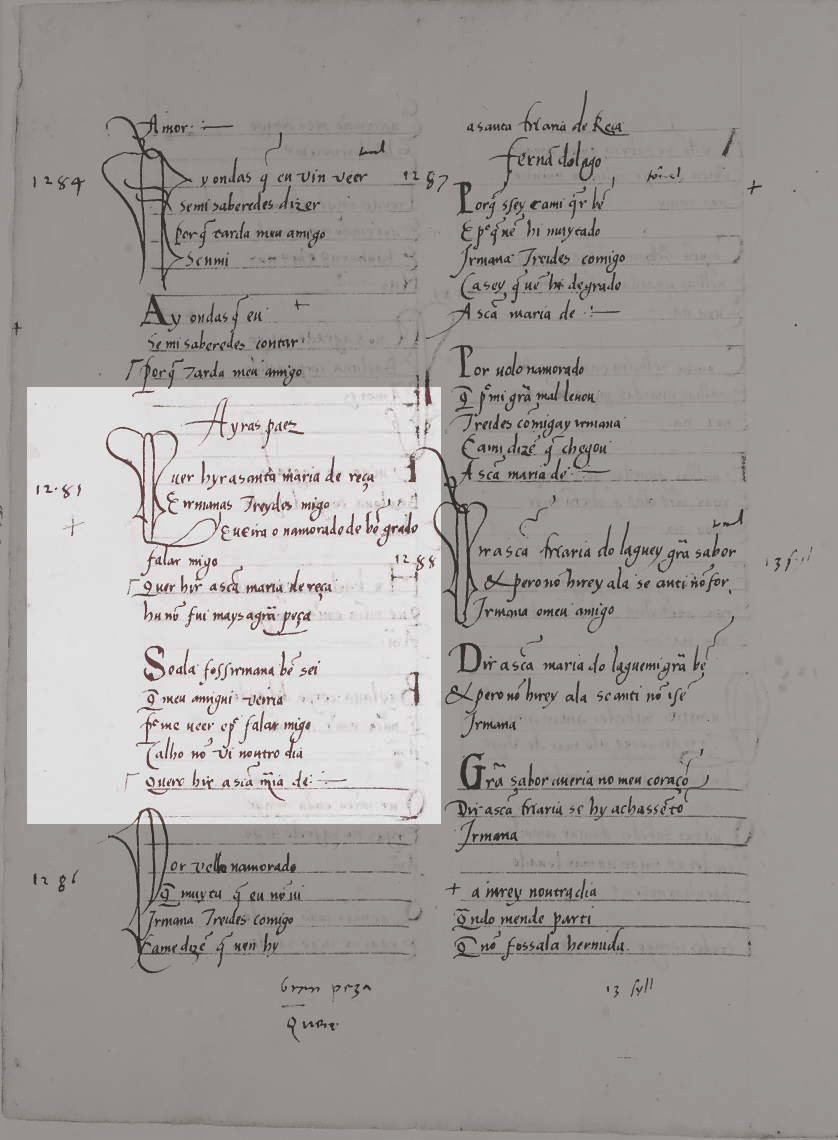 Amor
1284
Ay ondas q̃ eu uin veer
semi saberedes dizer
porq̃ tarda meu amigo
Senmi
Ay ondas q̃ eu
Se mi saberedes contar
porq̃ tarda meu amigo
Ayras paez
1285
Quer hyr a santa maria de reça
E ermanas Treydes migo
E ueira o namorado de bõ grado
falar migo
Quer hir a scã maria de reça
hu nõ fui mays a grã peça
Se ala foss irmana bẽ sei
q̃ meu amigui verria
por me ueer e por falar migo
Ca lho nõ vi noutro dia
Quero hir a scã mãia de
1286
Por vello namorado
q̃ muyta q̃ eu nõ ui
Irmana Treides comigo
Came dizẽ q̃ uen hy
Gran peza
Quer
a santa Maria de Reça
Fernã do lago
1287
Porq̃ ssey ca mi q̃r bẽ
E porq̃ uẽ hi muy cado
Irmana Treides comigo
Ca sey q̃ uẽ hi de grado
A scã maria de
Por uelo namorado
q̃ por mi grã mal leuou
Treides comigay irmana
Ca mi dizẽ q̃ chegou
A scã maria de
1288
D ir a scã Maria do laguey grã sabor
& pero nõ hirey ala se anti nõ for
Irmana o meu amigo
D ir a scã maria do laguemi grã bẽ
& pero nõ hirey ala se anti nõ uẽ
Irmana
Grã sabor aueria no meu coraçõ
D ir a scã Maria se hy achassẽtõ
Irmana
q̃ndo mende parti
Q̃ nõ fossala hermida
13 syll